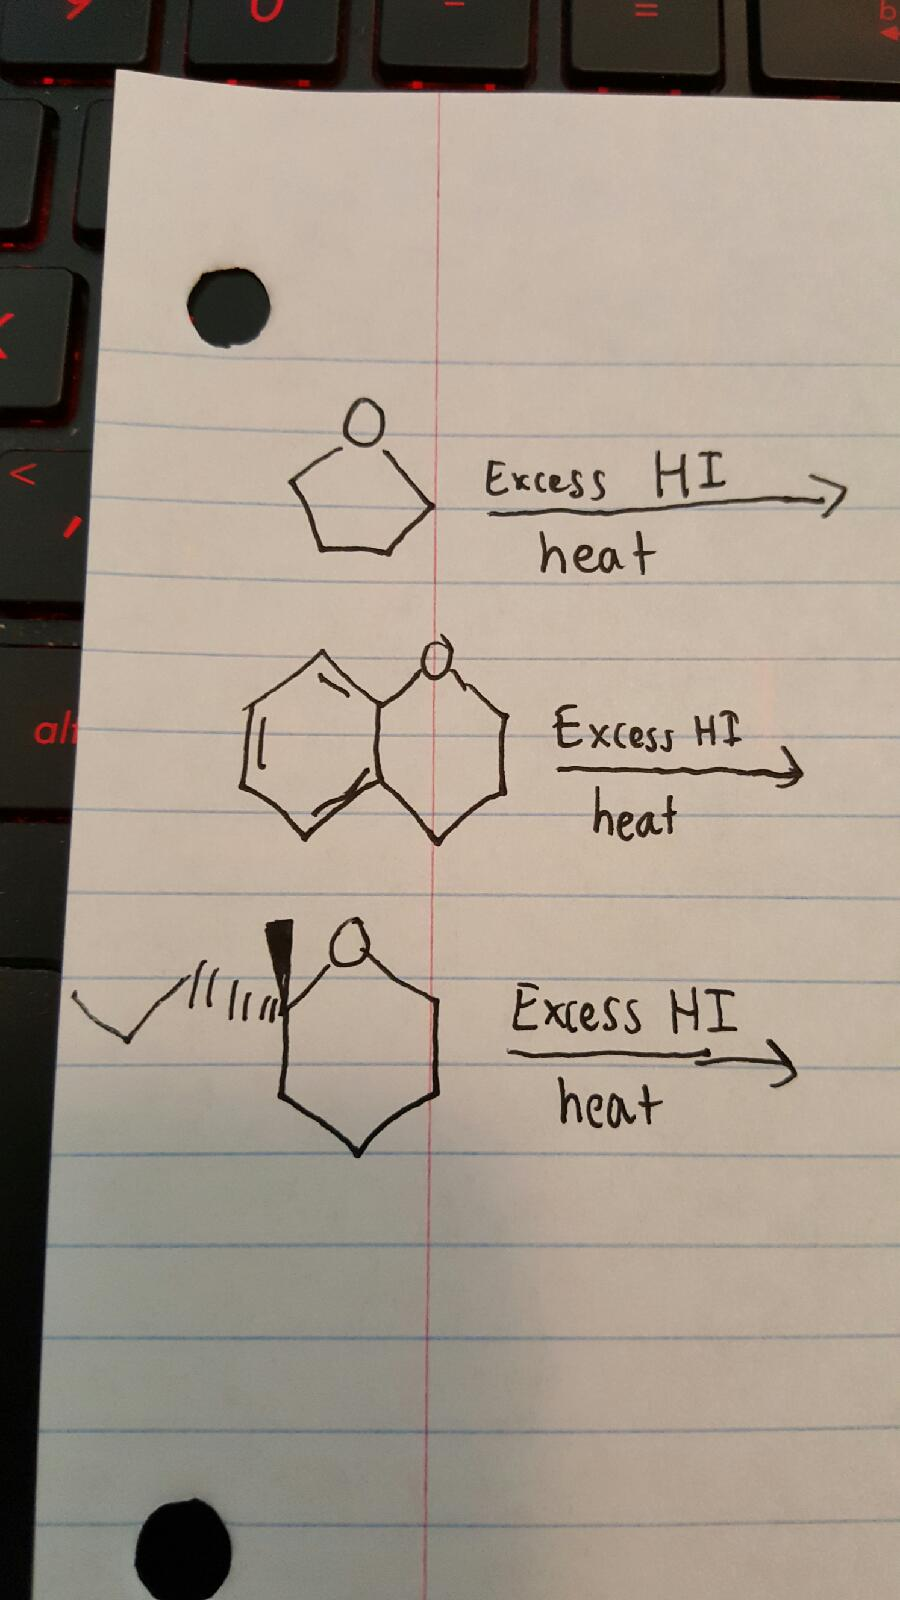 O
Excess HI
heat
O
Excess HI
heat
O
Excess HI
heat
=
b
<
,
alt